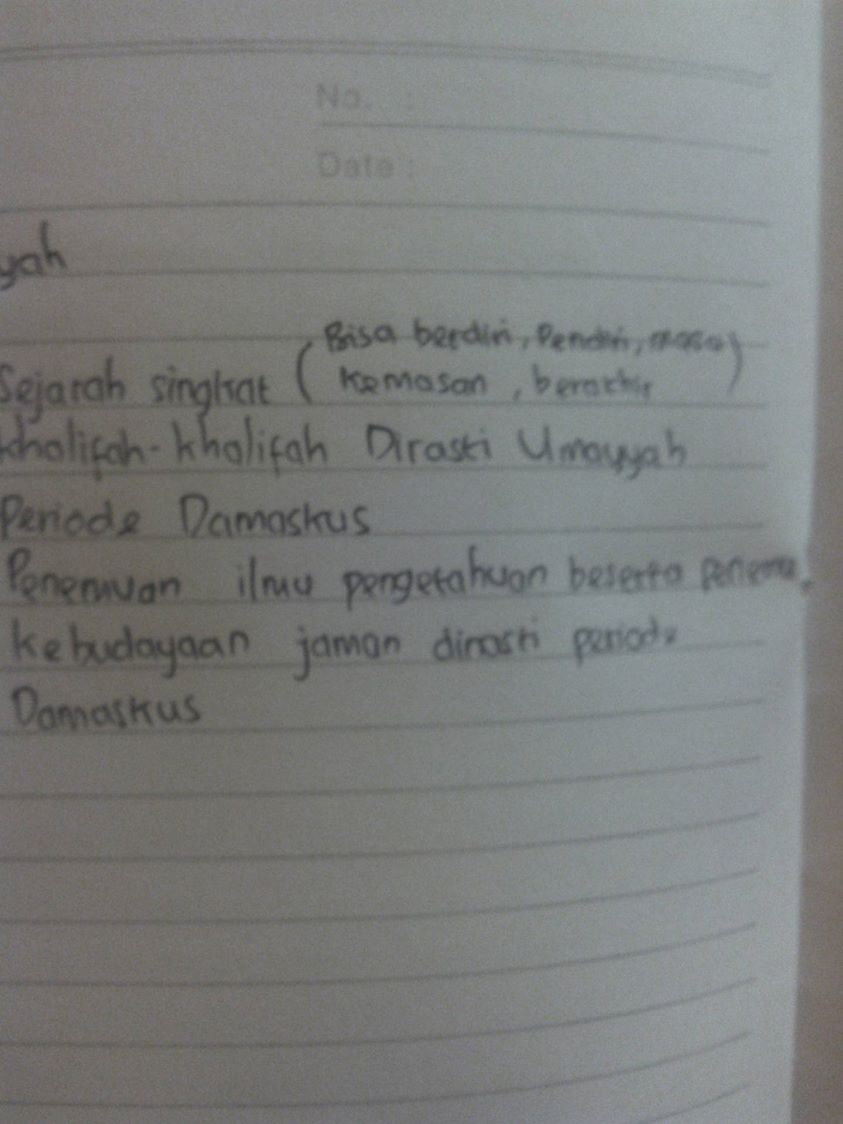 No. :
Date :
yah
Bisa berdiri, Pendiri, masa
Sejarah singkat ( kemasan, berakhir )
khalifah-khalifah Dinasti Umayyah
Periode Damaskus
Penemuan ilmu pengetahuan beserta penemu,
kebudayaan jaman dinasti periode
Damaskus